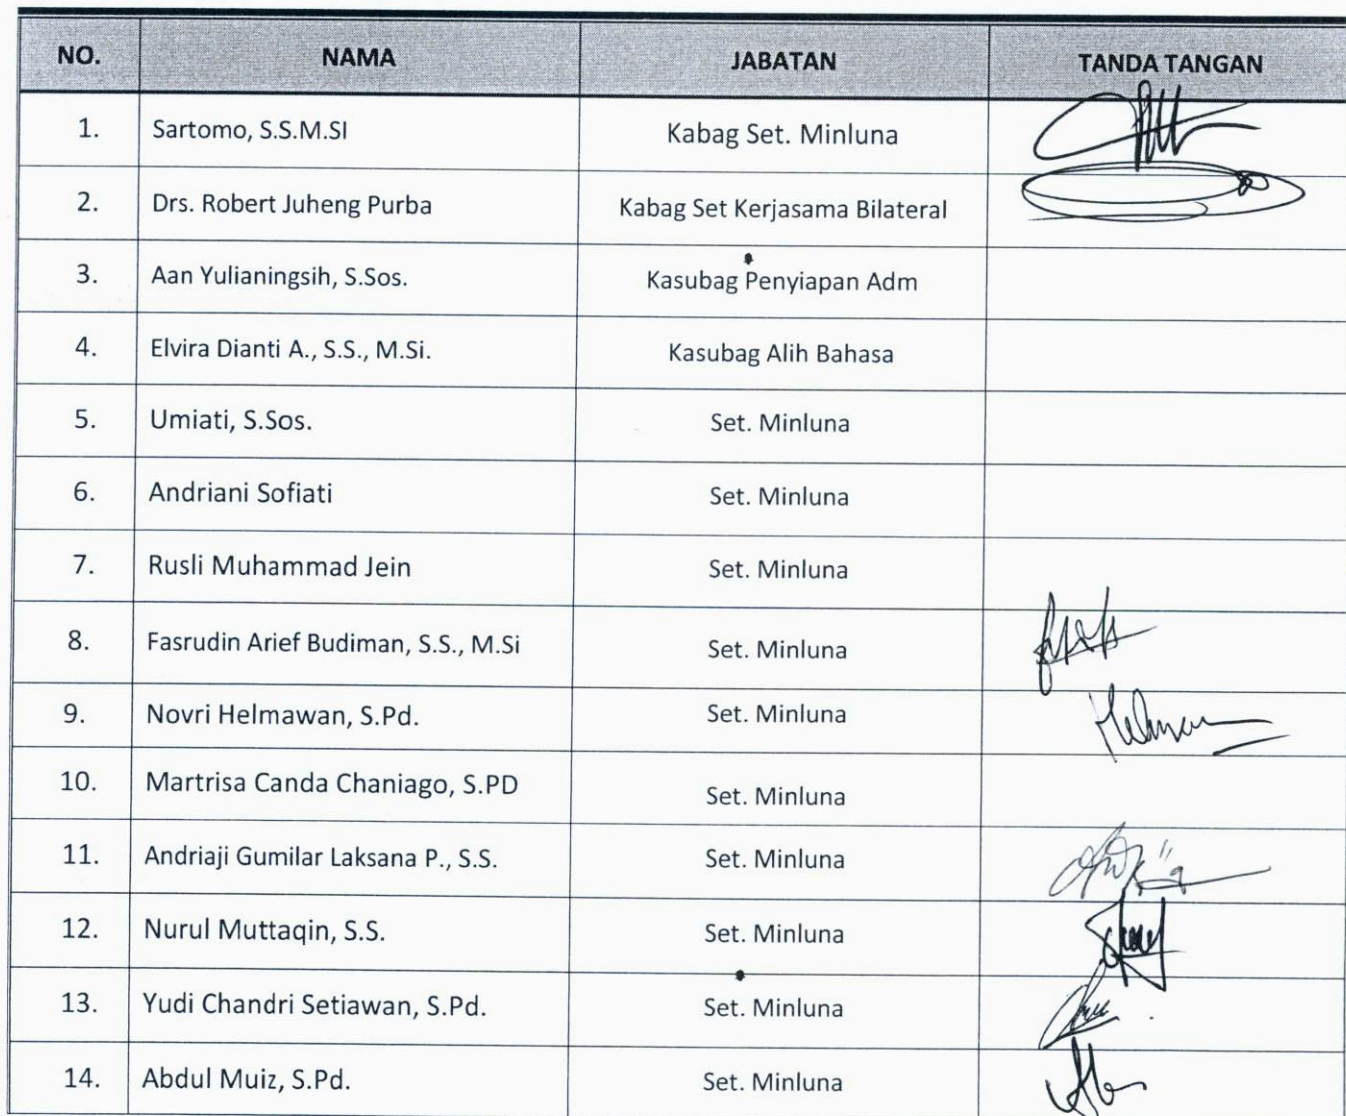 NO. NAMA JABATAN TANDA TANGAN
1. Sartomo, S.S.M.SI Kabag Set. Minluna
2. Drs. Robert Juheng Purba Kabag Set Kerjasama Bilateral
3. Aan Yulianingsih, S.Sos. Kasubag Penyiapan Adm
4. Elvira Dianti A., S.S., M.Si. Kasubag Alih Bahasa
5. Umiati, S.Sos. Set. Minluna
6. Andriani Sofiati Set. Minluna
7. Rusli Muhammad Jein Set. Minluna
8. Fasrudin Arief Budiman, S.S., M.Si Set. Minluna
9. Novri Helmawan, S.Pd. Set. Minluna
10. Martrisa Canda Chaniago, S.PD Set. Minluna
11. Andriaji Gumilar Laksana P., S.S. Set. Minluna
12. Nurul Muttaqin, S.S. Set. Minluna
13. Yudi Chandri Setiawan, S.Pd. Set. Minluna
14. Abdul Muiz, S.Pd. Set. Minluna